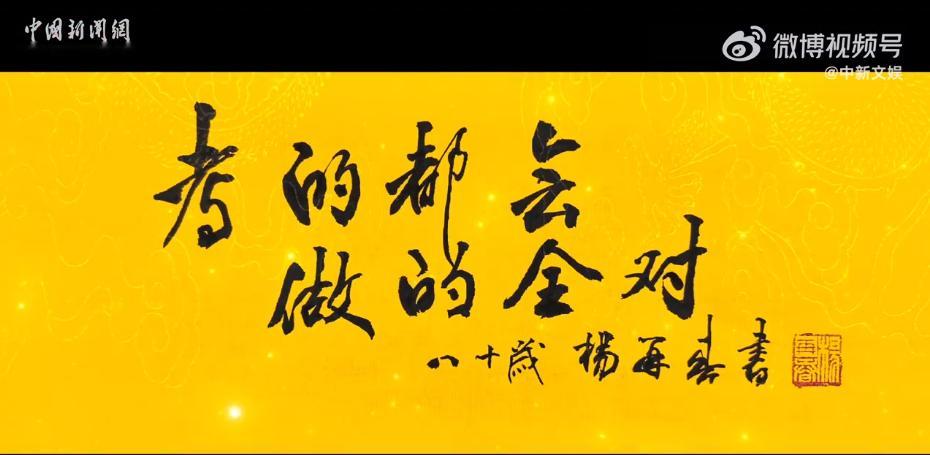 中國新聞網
微博视频号
@中新文娱
考的都会
做的全对
八十歲 楊再春書
楊再春